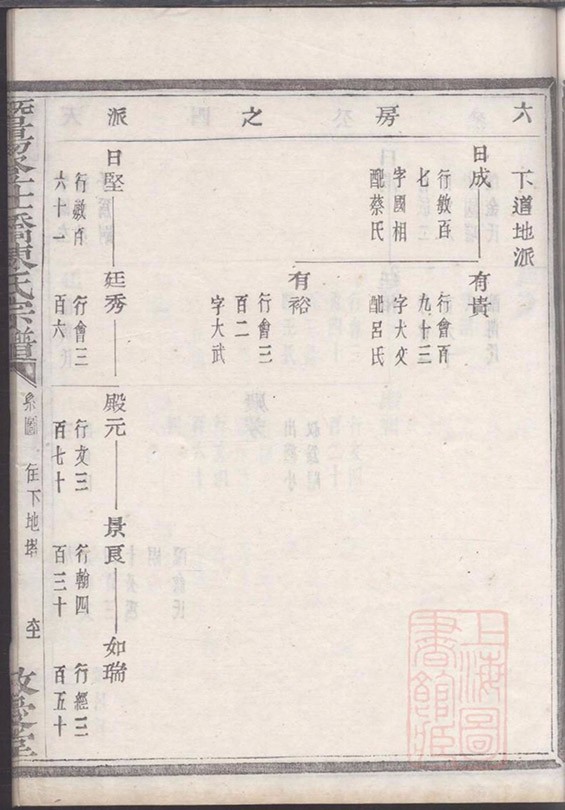 六房之四派
下道地派
日成
行敏百
七
字國相
配蔡氏
有貴
行會百
九十三
字大文
配呂氏
有裕
行會三
百二
字大武
日堅
行敏百
六十一
廷秀
行會三
百六
殿元
行文三
百七十
景良
行翰四
百三十
如瑞
行經三
百五十
陳氏宗譜
系圖
住下地塔
上海圖書館藏